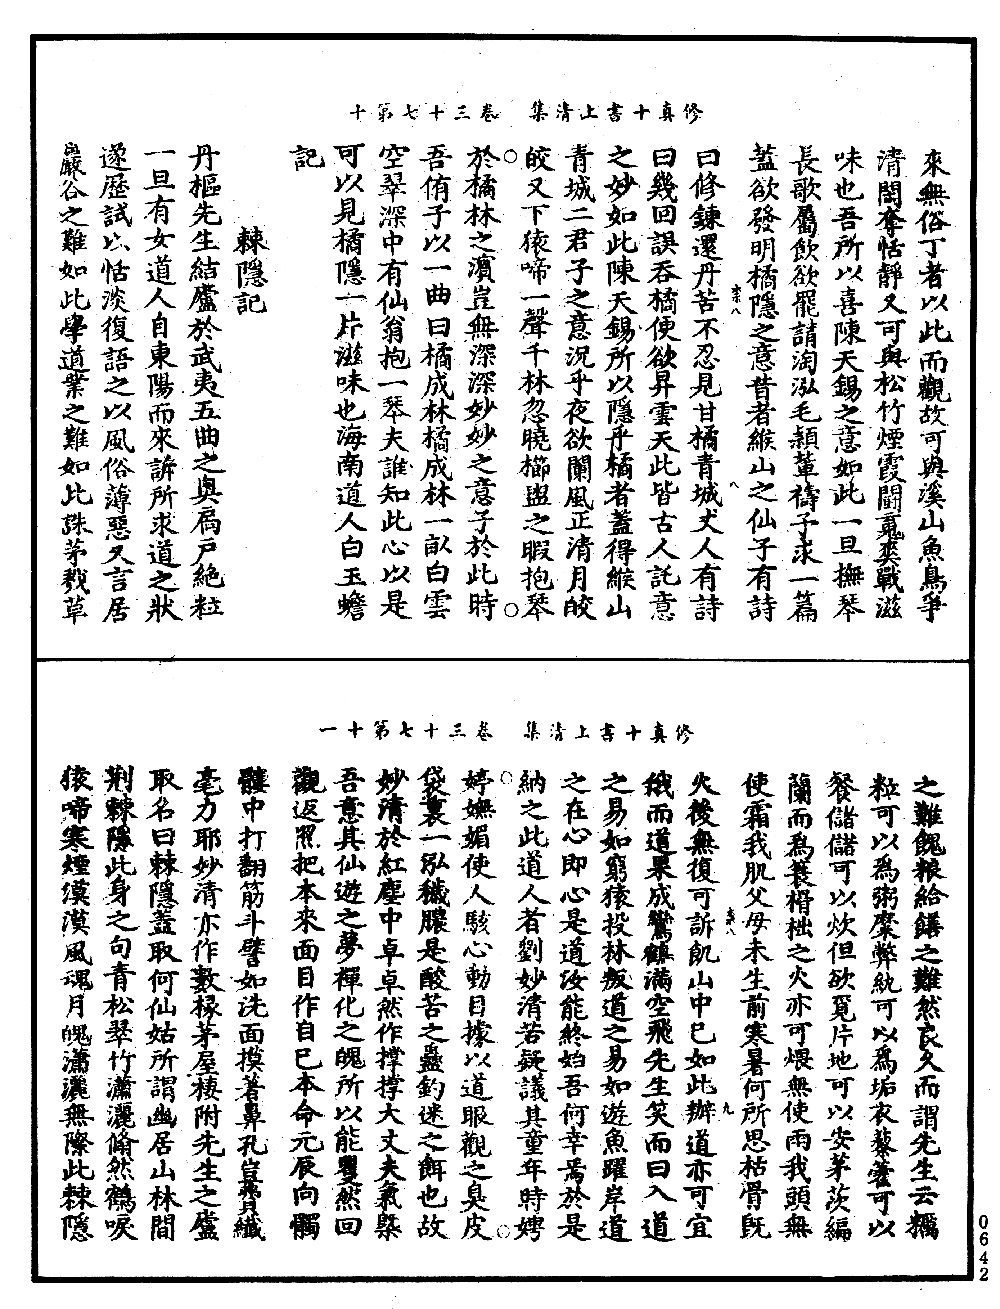 修真十書上清集　卷三十七第十
來無俗丁者以此而觀故可與溪山魚鳥爭
清閑奪恬靜又可與松竹煙霞鬪蕭爽戰滋
味也吾所以喜陳天錫之意如此一旦撫琴
長歌屬飲欲罷請淘泓毛穎輩禱予求一篇
蓋欲發明橘隱之意昔者緱山之仙子有詩
曰修鍊還丹苦不忍見甘橘青城丈人有詩
曰幾回誤吞橘便欲昇雲天此皆古人託意
之妙如此陳天錫所以隱乎橘者蓋得緱山
青城二君子之意況乎夜欲闌風正清月皎
皎又下猿啼一聲千林忽曉櫛盥之暇抱琴
於橘林之濱豈無深深妙妙之意子於此時
吾侑子以一曲曰橘成林橘成林一畝白雲
空翠深中有仙翁抱一琴夫誰知此心以是
可以見橘隱一片滋味也海南道人白玉蟾
記
棘隱記
丹樞先生結廬於武夷五曲之奧扃戶絶粒
一旦有女道人自東陽而來訴所求道之狀
遂歷試以恬淡復語之以風俗薄惡又言居
巖谷之難如此學道業之難如此誅茅戮草
修真十書上清集　卷三十七第十一
之難餽粮給饍之難然良久而謂先生云糲
粒可以爲粥糜弊紈可以爲垢衣藜藿可以
餐儲儲可以炊但欲覓片地可以安茅茨編
蘭而爲蓑榾柮之火亦可煨無使雨我頭無
使霜我肌父母未生前寒暑何所思枯骨旣
火後無復可訴飢山中已如此辦道亦可宜
俄而道果成鸞鶴滿空飛先生笑而曰入道
之易如窮猿投林叛道之易如遊魚躍岸道
之在心即心是道汝能終始吾何幸焉於是
納之此道人者劉妙清若疑議其童年時娉
婷嫵媚使人駭心動目據以道眼觀之臭皮
袋裏一泓穢膿是酸苦之蠱鈞迷之餌也故
妙清於紅塵中卓卓然作撑撑大丈夫氣槩
吾意其仙遊之夢禪化之魄所以能矍然回
觀返照把本來面目作自巳本命元辰向髑
髏中打翻筋斗譬如洗面摸著鼻孔豈費纖
毫力耶妙清亦作數椽茅屋棲附先生之廬
取名曰棘隱蓋取何仙姑所謂幽居山林間
荆棘隱此身之句青松翠竹瀟灑翛然鶴唳
猿啼寒煙漠漠風魂月魄瀟灑無際此棘隱
0642